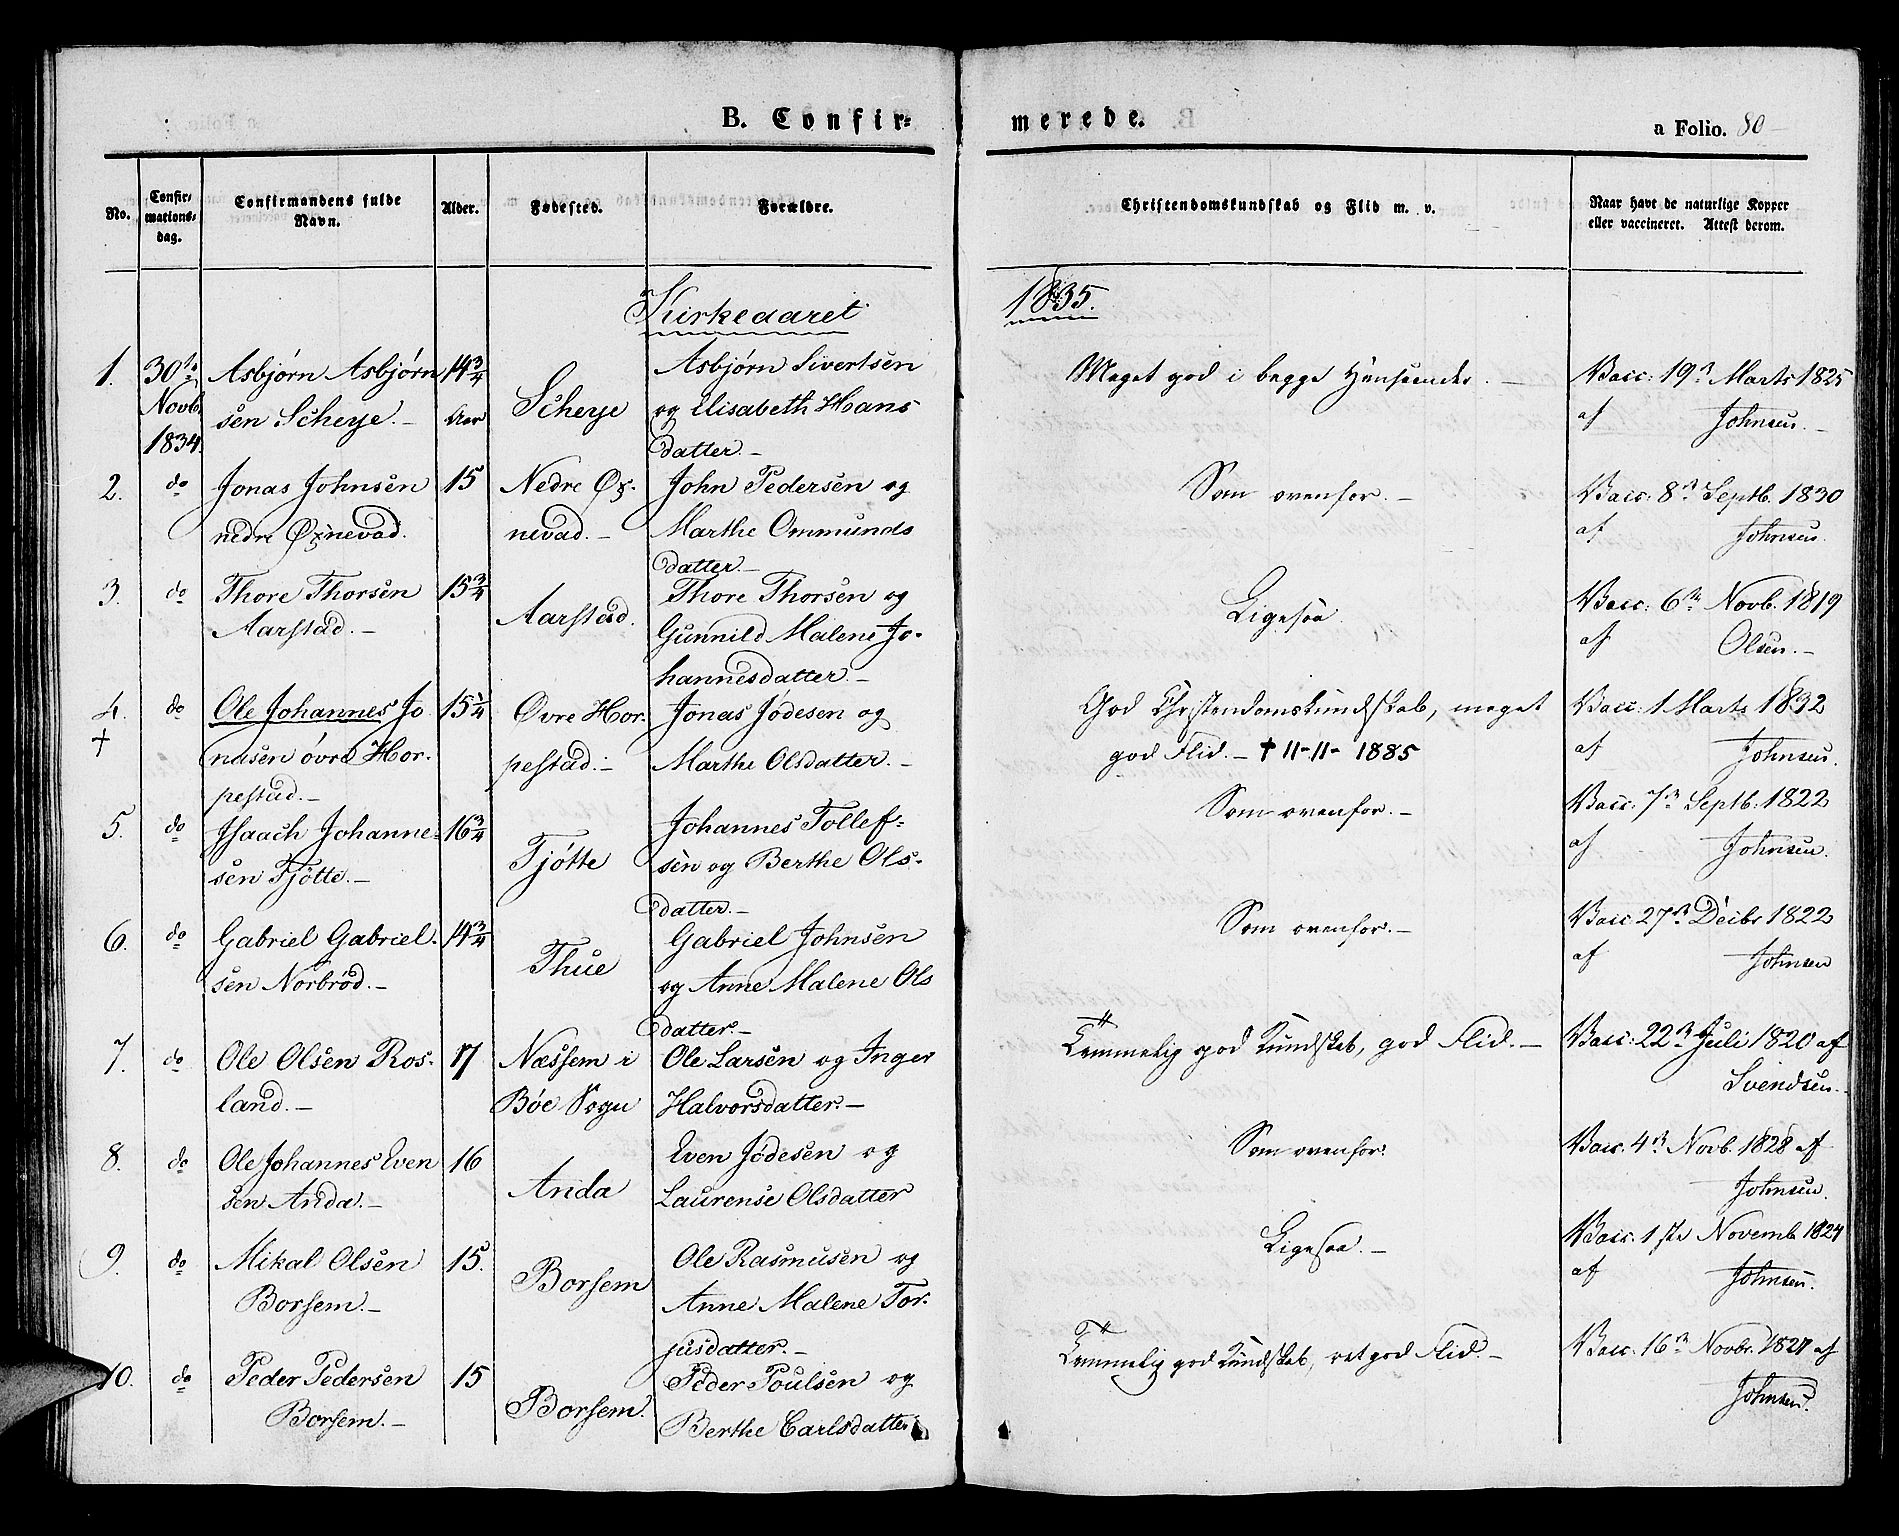 B. Confir=
merede.
a Folio. 80
No.
Confir-
mations-
dag.
Confirmandens fulde
Navn.
Alder.
Fødested.
Forældre.
Christendomskundskab og Flid m. v.
Naar havt de naturlige Kopper
eller vaccineret. Attest derom.
Kirkeaaret 1835.
1. 30te Asbjørn Asbjørn 14 3/4 Scheye Asbjørn Sivertsen Meget god i begge Henseender. — Vacc: 19de Marts 1825
Novb. sen Scheye. — Aar og Elisabeth Hans af Johnsen. —
1834. datter. —
2. do Jonas Johnsen 15 Nedre Øx- John Pedersen og Som ovenfor. — Vacc: 8de Septb. 1830
nedre Øxnevad. nevad. — Marthe Ommunds af Johnsen.
datter. —
3. do Thore Thorsen 15 3/4 Aarstad. Thore Thorsen og Ligesaa Vacc: 6te Novb. 1819
Aarstad. — Gunnild Malene Jo- af Olsen. —
hannesdatter. —
4. do Ole Johannes Jo 15 1/4 Øvre Hor- Jonas Jødesen og God Christendomskundskab, meget Vacc: 1 Marts 1832
† nasen øvre Hor- pestad. — Marthe Olsdatter. — god Flid. — † 11-11- 1885 af Johnsen.
pestad. —
5. do Isaach Johanne- 16 3/4 Tjøtte Johannes Tollef- Som ovenfor. — Vacc: 7de Septb. 1822
sen Tjøtte. — sen og Berthe Ols- af Johnsen.
datter. —
6. do Gabriel Gabriel- 14 3/4 Thue Gabriel Johnsen Som ovenfor. — Vacc 27de Decbr 1822
sen Norbrød. — og Anne Malene Ols af Johnsen
datter. —
7. do Ole Olsen Ros- 17 Næssem i Ole Larsen og Inger Temmelig god Kundskab, god Flid. — Vacc: 22de Juli 1820 af
land. — Bøe Sogn Halvorsdatter. — Svendsen. —
8. do Ole Johannes Even 16 Anda Even Jødesen og Som ovenfor. Vacc. 4de Novb. 1828 af
sen Anda. — Laurense Olsdatter Johnsen.
9. do Mikal Olsen 15. Borsem Ole Rasmusen og Ligesaa. — Vacc. 1ste Novemb 1824
Borsem. — Anne Malene Tor- af Johnsen.
jusdatter. —
10. do Peder Pedersen 15 Borsem. Peder Poulsen og Temmelig god Kundskab, ret god Flid. — Vacc: 16de Novbr. af
Borsem. — Berthe Carlsdatter Johnsen.